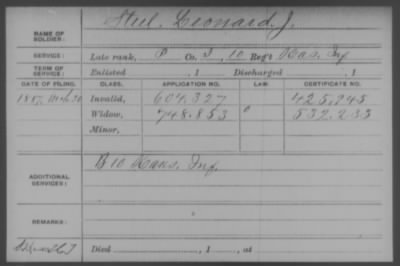 Steel, Leonard J.
NAME OF SOLDIER:
SERVICE: Late rank, P Co. I, 10 Reg't Kas. Inf
TERM OF SERVICE: Enlisted , 1 Discharged , 1
DATE OF FILING. CLASS. APPLICATION NO. LAW. CERTIFICATE NO.
1887 Invalid, 604.327 425.945
Widow, 748.853 532.235
Minor,
ADDITIONAL SERVICES: B 10 Kans. Inf.
REMARKS:
Died , 1 , at